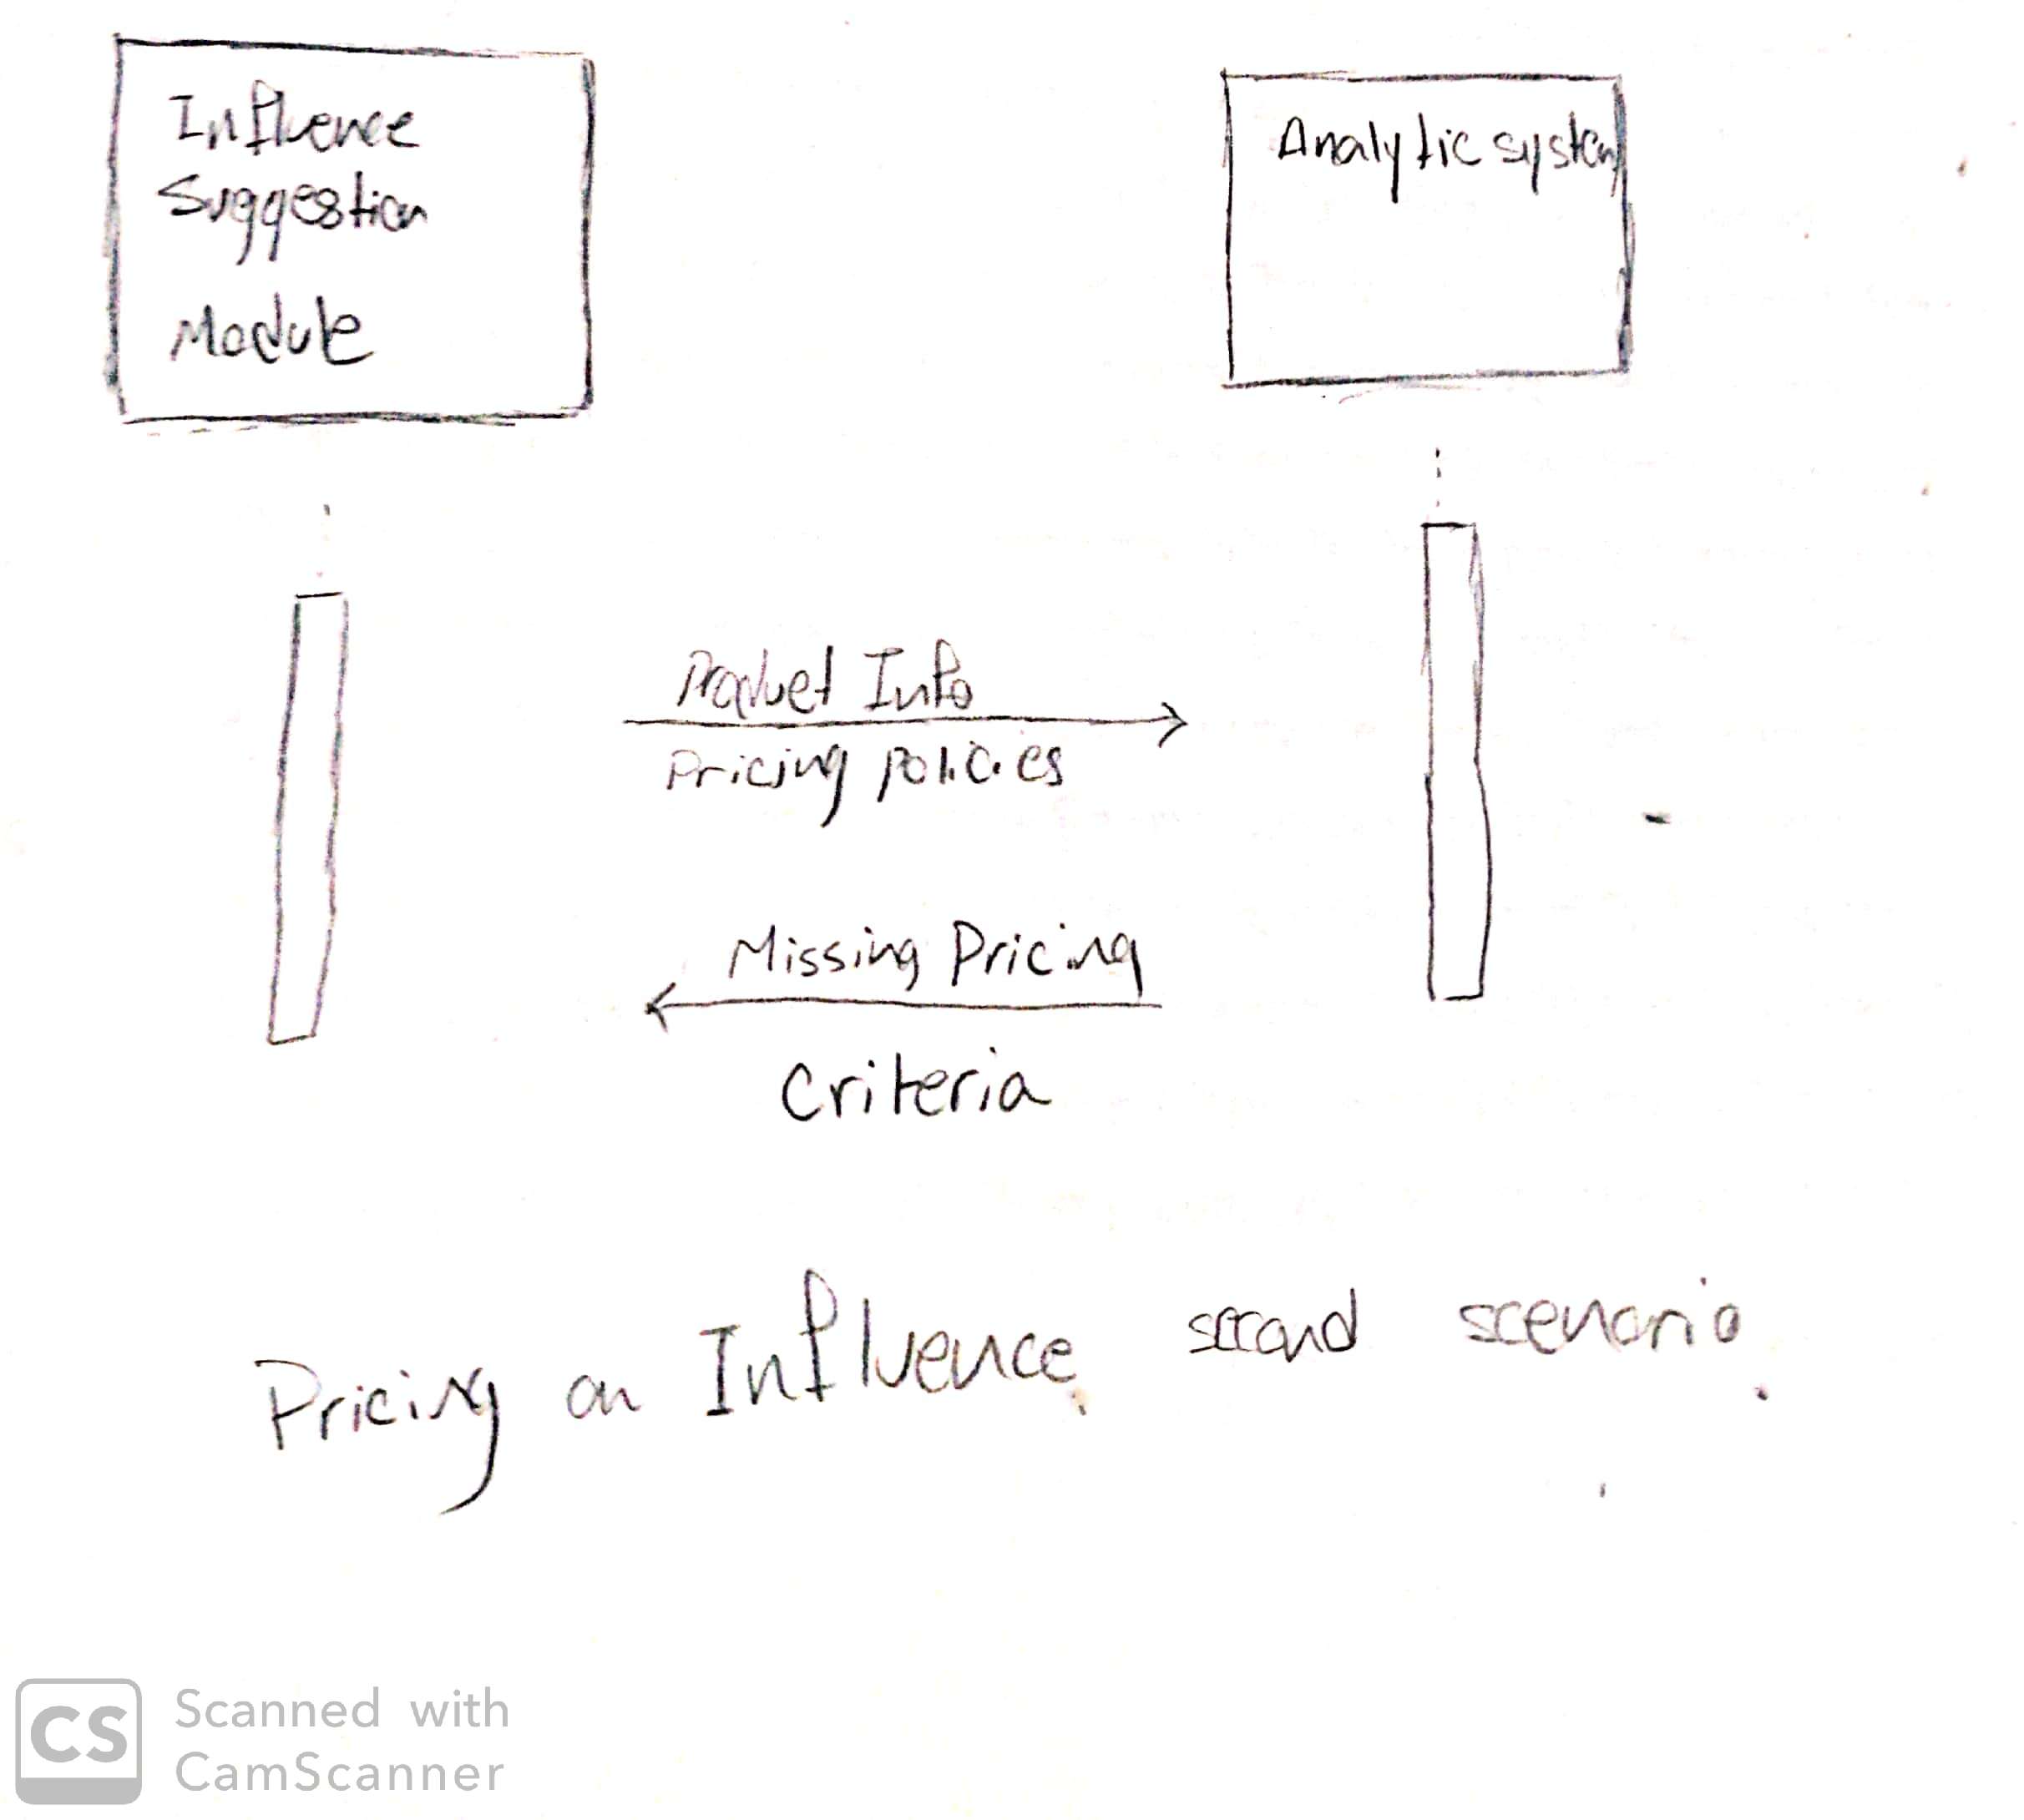 Influence
Suggestion
Module
Analytic system
Product Info
Pricing policies
Missing Pricing
Criteria
Pricing on Influence second scenario.
CS
Scanned with
CamScanner